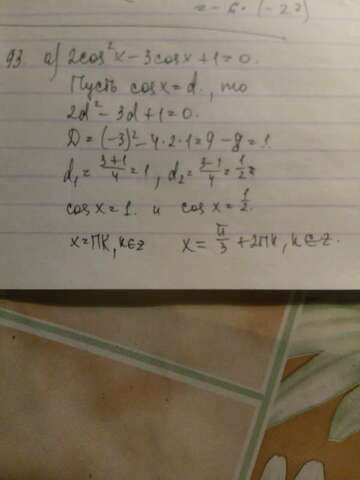 = -6 · (-22)
93 а) 2cos²x - 3cosx + 1 = 0.
Пусть cosx = d., то
2d² - 3d + 1 = 0.
D = (-3)² - 4·2·1 = 9 - 8 = 1.
d₁ = (3+1)/4 = 1, d₂ = (3-1)/4 = 1/2
cosx = 1. и cosx = 1/2.
x = Пk, k∈z x = π/3 + 2Пk, k∈z.